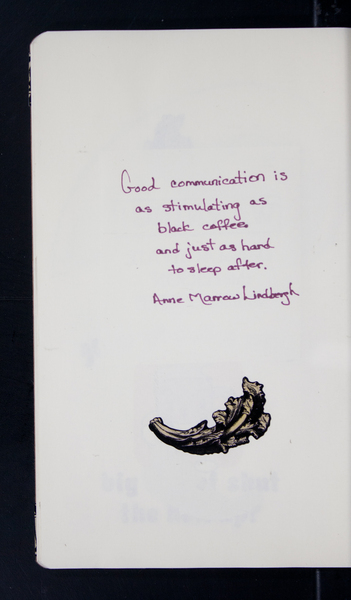 Good communication is
as stimulating as
black coffee
and just as hard
to sleep after.
Anne Marrow Lindbergh